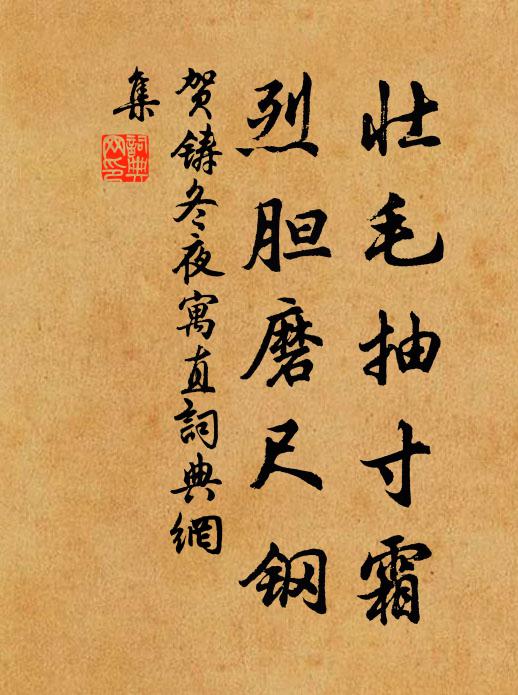 壮毛抽寸霜
烈胆磨尺钢
贺铸冬夜寓直詞典網
集
詞典
网印